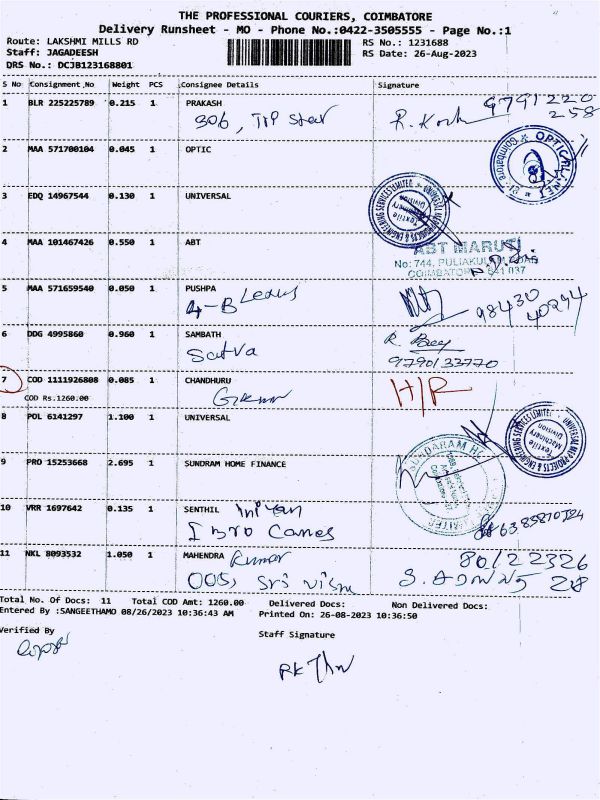 THE PROFESSIONAL COURIERS, COIMBATORE
Delivery Runsheet - MO - Phone No.:0422-3505555 - Page No.:1
Route: LAKSHMI MILLS RD
Staff: JAGADEESH
DRS No.: DCJB123168801
RS No.: 1231688
RS Date: 26-Aug-2023
S No Consignment_No Weight PCS Consignee Details Signature
1 BLR 225225789 0.215 1 PRAKASH
306, TIP Star
9791220
258
2 MAA 571700104 0.045 1 OPTIC
3 EDQ 14967544 0.130 1 UNIVERSAL
UNIVERSAL MEP PROJECTS & ENGINEERING SERVICES LIMITED
Textile
Machinery
Division
4 MAA 101467426 0.550 1 ABT
ABT MARUTI
No: 744, PULIAKULAM ROAD
COIMBATORE - 641 037
5 MAA 571659540 0.050 1 PUSHPA
4-B
98430
40294
6 DDG 4995860 0.960 1 SAMBATH
Satva
9790133770
7 COD 1111926808 0.085 1 CHANDHURU
COD Rs.1260.00
H/R
8 POL 6141297 1.100 1 UNIVERSAL
UNIVERSAL MEP PROJECTS & ENGINEERING SERVICES LIMITED
Textile
Machinery
Division
9 PRO 15253668 2.695 1 SUNDRAM HOME FINANCE
10 VRR 1697642 0.135 1 SENTHIL
11 NKL 8093532 1.050 1 MAHENDRA Kumar
005, Sri
80122326
28
Total No. Of Docs: 11 Total COD Amt: 1260.00 Delivered Docs: Non Delivered Docs:
Entered By :SANGEETHAMO 08/26/2023 10:36:43 AM Printed On: 26-08-2023 10:36:50
Verified By
Staff Signature